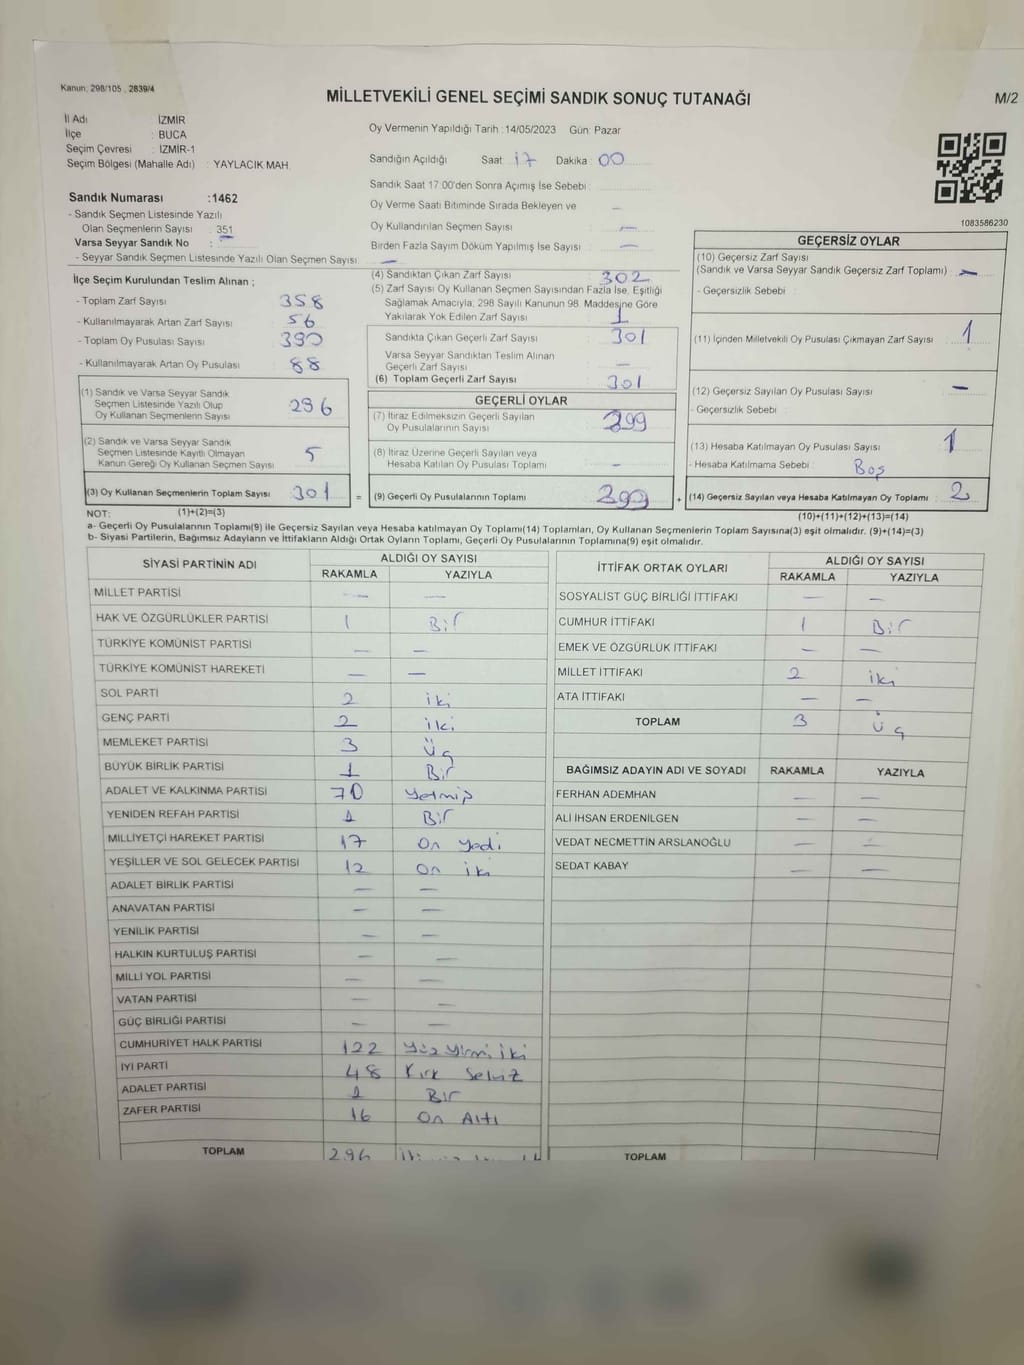 Kanun: 298/105 , 2839/4
MİLLETVEKİLİ GENEL SEÇİMİ SANDIK SONUÇ TUTANAĞI
M/2
İl Adı : İZMİR
İlçe : BUCA
Seçim Çevresi : İZMİR-1
Seçim Bölgesi (Mahalle Adı) : YAYLACIK MAH.
Oy Vermenin Yapıldığı Tarih :14/05/2023 Gün: Pazar
Sandığın Açıldığı Saat : 17 Dakika : 00
Sandık Saat 17:00'den Sonra Açılmış İse Sebebi :
Oy Verme Saati Bitiminde Sırada Bekleyen ve
Oy Kullandırılan Seçmen Sayısı : —
Birden Fazla Sayım Döküm Yapılmış İse Sayısı : —
1083586230
Sandık Numarası :1462
- Sandık Seçmen Listesinde Yazılı
Olan Seçmenlerin Sayısı : 351
Varsa Seyyar Sandık No : —
- Seyyar Sandık Seçmen Listesinde Yazılı Olan Seçmen Sayısı: —
İlçe Seçim Kurulundan Teslim Alınan ;
- Toplam Zarf Sayısı 358
- Kullanılmayarak Artan Zarf Sayısı : 56
- Toplam Oy Pusulası Sayısı : 390
- Kullanılmayarak Artan Oy Pusulası : 88
(1) Sandık ve Varsa Seyyar Sandık
Seçmen Listesinde Yazılı Olup
Oy Kullanan Seçmenlerin Sayısı 296
(2) Sandık ve Varsa Seyyar Sandık
Seçmen Listesinde Kayıtlı Olmayan
Kanun Gereği Oy Kullanan Seçmen Sayısı 5
(3) Oy Kullanan Seçmenlerin Toplam Sayısı 301
(4) Sandıktan Çıkan Zarf Sayısı : 302
(5) Zarf Sayısı Oy Kullanan Seçmen Sayısından Fazla İse, Eşitliği
Sağlamak Amacıyla, 298 Sayılı Kanunun 98. Maddesine Göre
Yakılarak Yok Edilen Zarf Sayısı : 1
Sandıkta Çıkan Geçerli Zarf Sayısı : 301
Varsa Seyyar Sandıktan Teslim Alınan
Geçerli Zarf Sayısı : —
(6) Toplam Geçerli Zarf Sayısı : 301
GEÇERLİ OYLAR
(7) İtiraz Edilmeksizin Geçerli Sayılan
Oy Pusulalarının Sayısı 299
(8) İtiraz Üzerine Geçerli Sayılan veya
Hesaba Katılan Oy Pusulası Toplamı —
= (9) Geçerli Oy Pusulalarının Toplamı 299 +
GEÇERSİZ OYLAR
(10) Geçersiz Zarf Sayısı
(Sandık ve Varsa Seyyar Sandık Geçersiz Zarf Toplamı) : —
- Geçersizlik Sebebi :
(11) İçinden Milletvekili Oy Pusulası Çıkmayan Zarf Sayısı : 1
(12) Geçersiz Sayılan Oy Pusulası Sayısı : —
- Geçersizlik Sebebi :
(13) Hesaba Katılmayan Oy Pusulası Sayısı : 1
- Hesaba Katılmama Sebebi : Boş
(14) Geçersiz Sayılan veya Hesaba Katılmayan Oy Toplamı : 2
NOT: (1)+(2)=(3)
(10)+(11)+(12)+(13)=(14)
a- Geçerli Oy Pusulalarının Toplamı(9) ile Geçersiz Sayılan veya Hesaba katılmayan Oy Toplamı(14) Toplamları, Oy Kullanan Seçmenlerin Toplam Sayısına(3) eşit olmalıdır. (9)+(14)=(3)
b- Siyasi Partilerin, Bağımsız Adayların ve İttifakların Aldığı Ortak Oyların Toplamı, Geçerli Oy Pusulalarının Toplamına(9) eşit olmalıdır.
SİYASİ PARTİNİN ADI ALDIĞI OY SAYISI
RAKAMLA YAZIYLA
MİLLET PARTİSİ — —
HAK VE ÖZGÜRLÜKLER PARTİSİ 1 Bir
TÜRKİYE KOMÜNİST PARTİSİ — —
TÜRKİYE KOMÜNİST HAREKETİ — —
SOL PARTİ 2 iki
GENÇ PARTİ 2 iki
MEMLEKET PARTİSİ 3 Üç
BÜYÜK BİRLİK PARTİSİ 1 Bir
ADALET VE KALKINMA PARTİSİ 70 Yetmiş
YENİDEN REFAH PARTİSİ 1 Bir
MİLLİYETÇİ HAREKET PARTİSİ 17 On Yedi
YEŞİLLER VE SOL GELECEK PARTİSİ 12 On iki
ADALET BİRLİK PARTİSİ — —
ANAVATAN PARTİSİ — —
YENİLİK PARTİSİ — —
HALKIN KURTULUŞ PARTİSİ — —
MİLLİ YOL PARTİSİ — —
VATAN PARTİSİ — —
GÜÇ BİRLİĞİ PARTİSİ — —
CUMHURİYET HALK PARTİSİ 122 Yüz Yirmi iki
İYİ PARTİ 48 Kırk Sekiz
ADALET PARTİSİ 1 Bir
ZAFER PARTİSİ 16 On Altı
TOPLAM 296
İTTİFAK ORTAK OYLARI ALDIĞI OY SAYISI
RAKAMLA YAZIYLA
SOSYALİST GÜÇ BİRLİĞİ İTTİFAKI — —
CUMHUR İTTİFAKI 1 Bir
EMEK VE ÖZGÜRLÜK İTTİFAKI — —
MİLLET İTTİFAKI 2 iki
ATA İTTİFAKI — —
TOPLAM 3 üç
BAĞIMSIZ ADAYIN ADI VE SOYADI RAKAMLA YAZIYLA
FERHAN ADEMHAN — —
ALİ İHSAN ERDENİLGEN — —
VEDAT NECMETTİN ARSLANOĞLU — —
SEDAT KABAY — —
TOPLAM